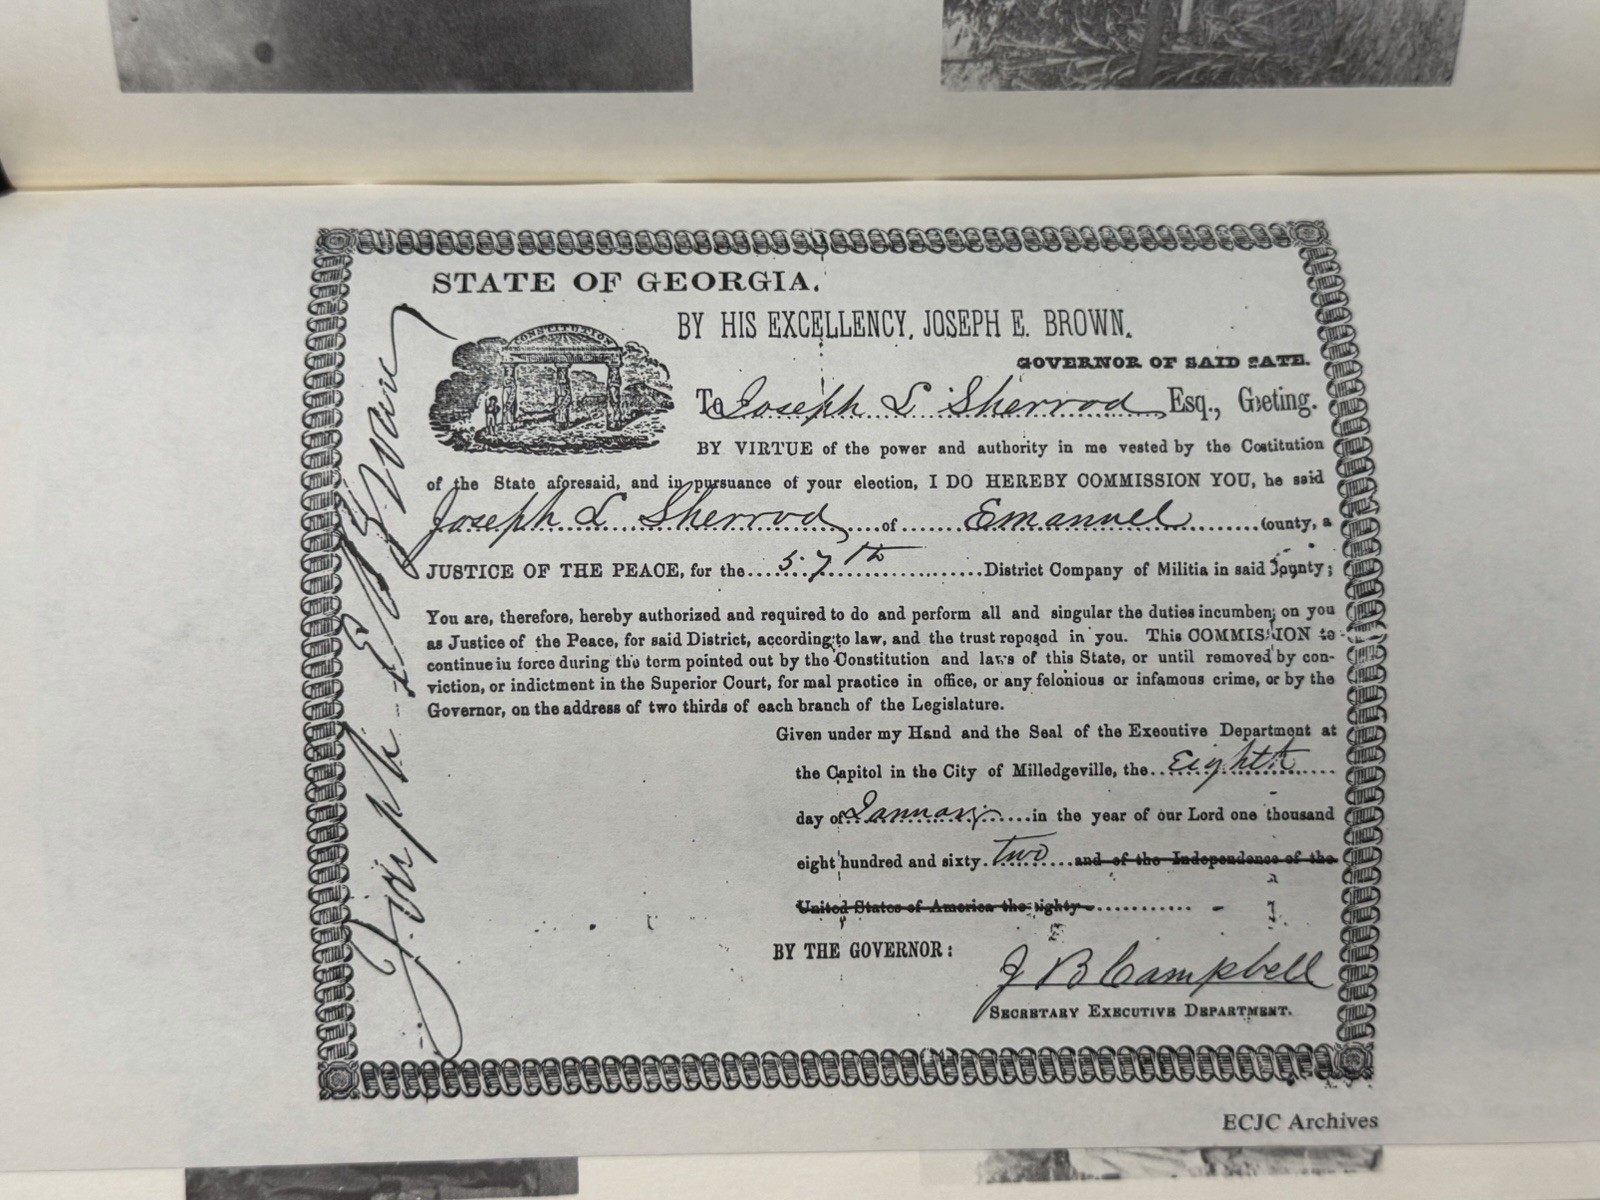 STATE OF GEORGIA.
BY HIS EXCELLENCY, JOSEPH E. BROWN,
GOVERNOR OF SAID SATE.
CONSTITUTION
To Joseph L Sherrod Esq., Greting.
BY VIRTUE of the power and authority in me vested by the Costitution
of the State aforesaid, and in pursuance of your election, I DO HEREBY COMMISSION YOU, he said
Joseph L Sherrod, of Emanuel County, a
JUSTICE OF THE PEACE, for the 57th District Company of Militia in said County;
You are, therefore, hereby authorized and required to do and perform all and singular the duties incumbent on you
as Justice of the Peace, for said District, according to law, and the trust reposed in you. This COMMISSION to
continue in force during the term pointed out by the Constitution and laws of this State, or until removed by con-
viction, or indictment in the Superior Court, for mal practice in office, or any felonious or infamous crime, or by the
Governor, on the address of two thirds of each branch of the Legislature.
Given under my Hand and the Seal of the Executive Department at
the Capitol in the City of Milledgeville, the Eighth
day of January in the year of our Lord one thousand
eight hundred and sixty two and of the Independence of the
United States of America the eighty
BY THE GOVERNOR:
J B Campbell
SECRETARY EXECUTIVE DEPARTMENT.
Joseph E Brown
ECJC Archives